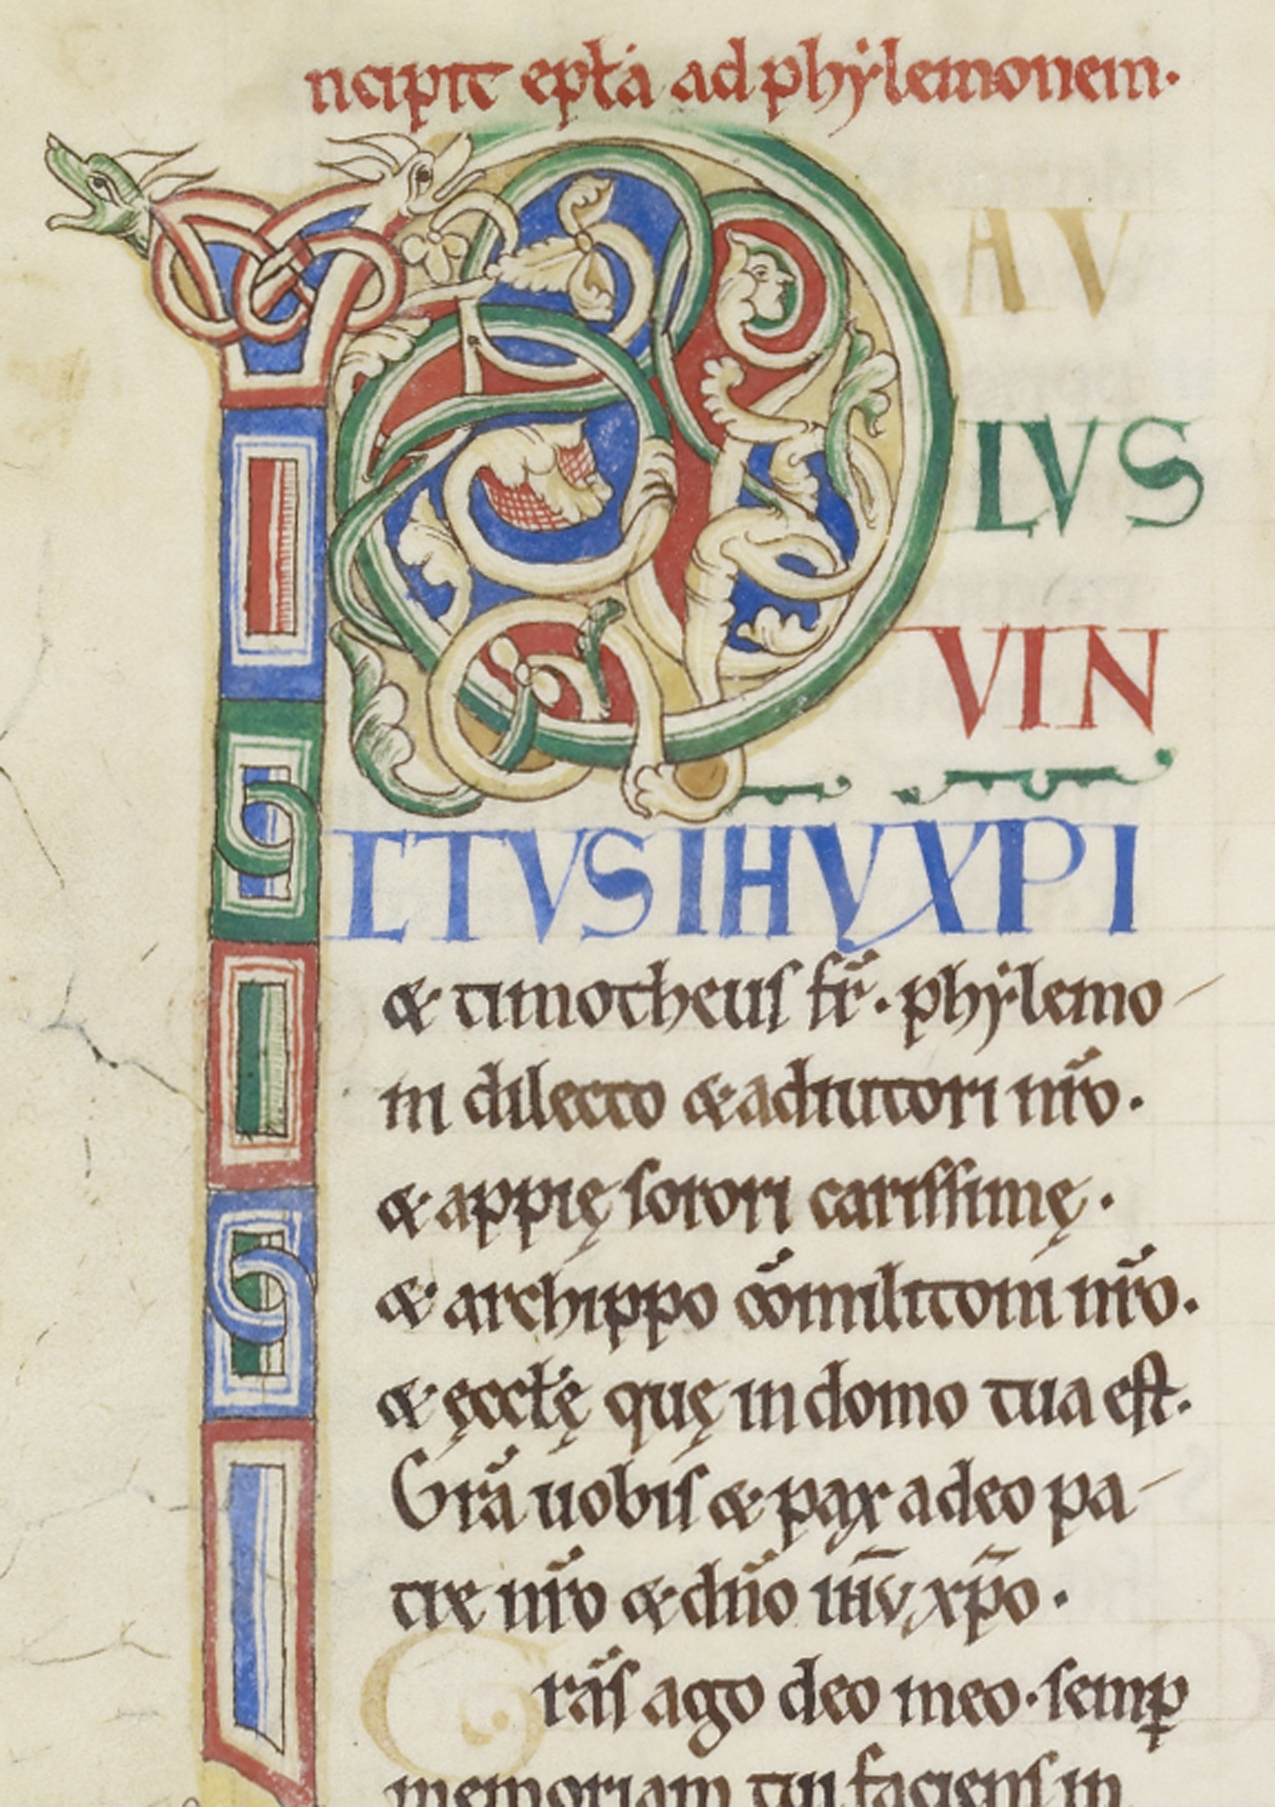 ncipit epła ad phẏlemonem.
P AV
LVS
VIN
CTVS IHV XPI
& timotheus fr̄. phẏlemo-
ni dilecto & adiutori nr̄o.
& appię sorori carissimę.
& archippo cōmilitoni nr̄o.
& ęccłę quę in domo tua est.
Grā uobis & pax a deo pa-
tre nr̄o & dn̄o ihū xp̄o.
G rās ago deo meo. semꝑ
memoriam tui faciens in